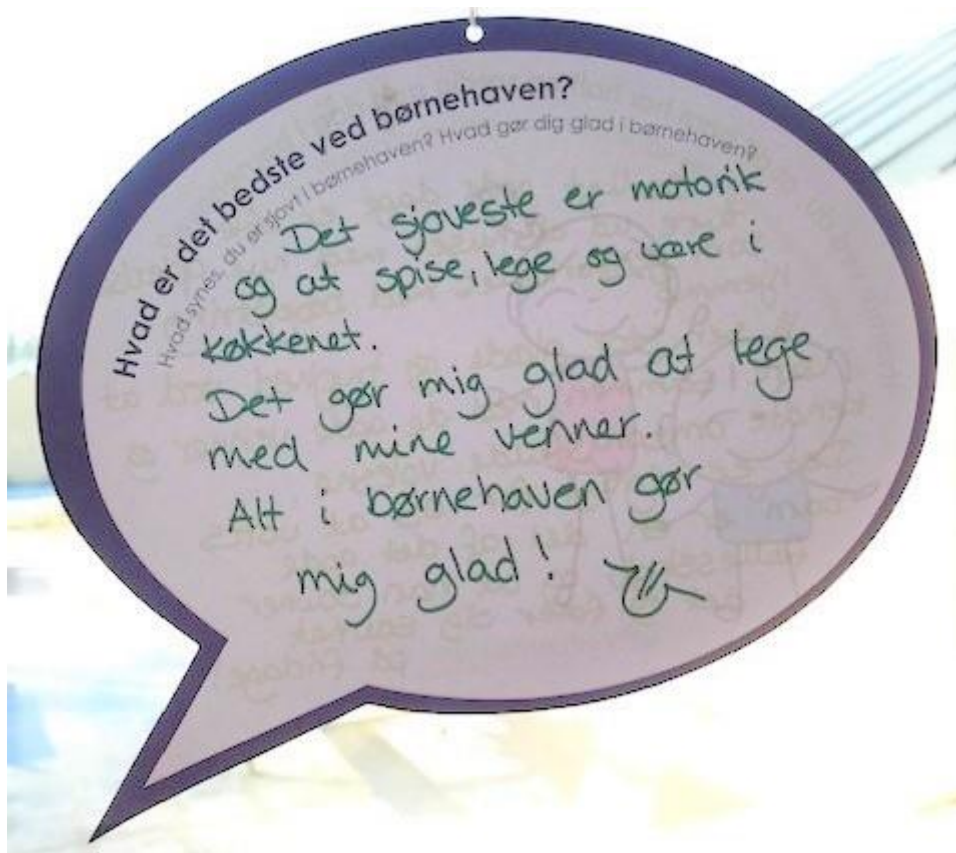 Hvad er det bedste ved børnehaven?
Hvad synes, du er sjovt i børnehaven? Hvad gør dig glad i børnehaven?
Det sjoveste er motorik
og at spise, lege og være i
køkkenet.
Det gør mig glad at lege
med mine venner.
Alt i børnehaven gør
mig glad!